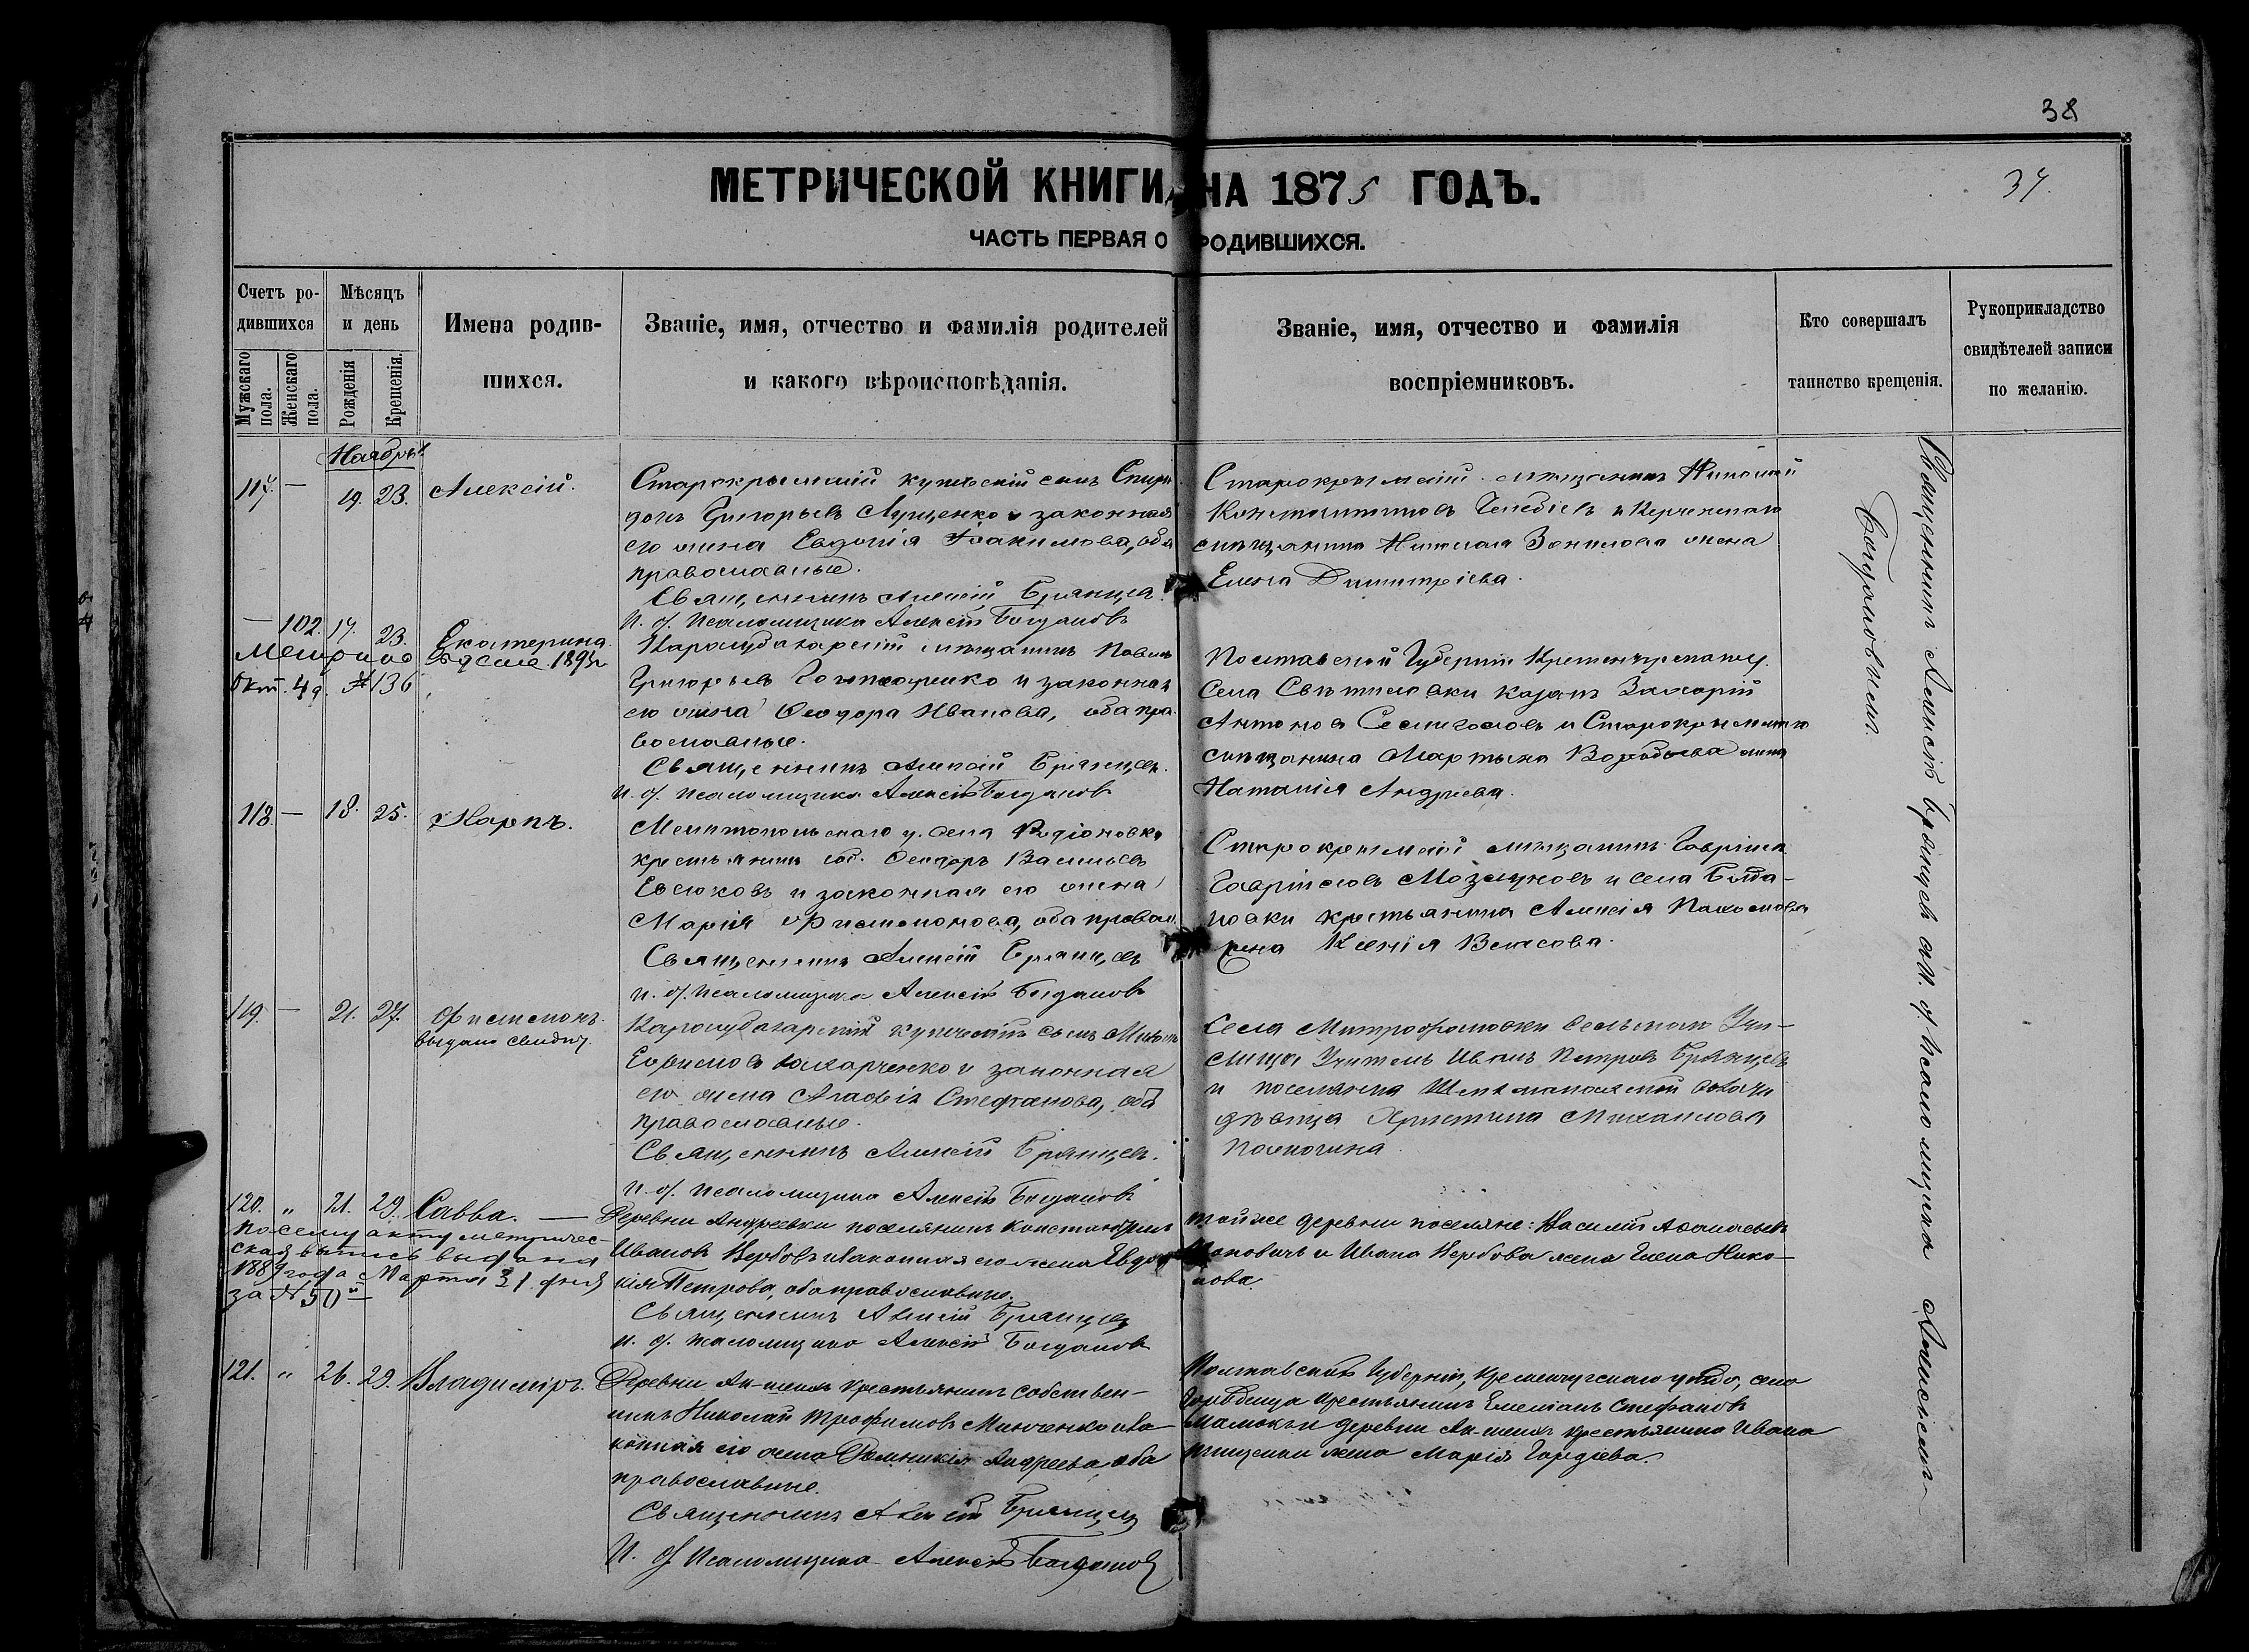 38
МЕТРИЧЕСКОЙ КНИГИ НА 1875 ГОДЪ.
34.
ЧАСТЬ ПЕРВАЯ О РОДИВШИХСЯ.
Счетъ ро-
дившихся
Мужскаго пола.
Женскаго пола.
Мѣсяцъ
и день
Рожденія
Крещенія.
Имена родив-
шихся.
Званіе, имя, отчество и фамилія родителей
и какого вѣроисповѣданія.
Званіе, имя, отчество и фамилія
воспріемниковъ.
Кто совершалъ
таинство крещенія.
Рукоприкладство
свидѣтелей записи
по желанію.
Ноябрь
117. — 19. 23. Алексій.
Старокрымскій купеческій сынъ Спири
донъ Григорьевъ Луценко и законная
его жена Евдокія Іоакимова, оба
православные.
Священникъ Алексій Брянцев
И. д. Псаломщика Алексій Богдановъ
Старокрымскій мѣщанинъ Николай
Константиновъ и Керченскаго
мѣщанина Николая жена
Елена Димитріева.
— 102. 17. 23. Екатерина.
1893г
Окт. 4 д. №136
Карасубазарскій мѣщанинъ Павелъ
Григорьевъ и законная
его жена Ѳеодора Иванова, оба пра-
вославные.
Священникъ Алексій Брянцевъ.
И. д. Псаломщика Алексій Богдановъ
Полтавской Губерніи Кременчугскаго у.
Села козакъ Захарій
Антоновъ и Старокрымскаго
мѣщанина Мартына Воробьева жена
Наталія Андреева.
118. — 18. 25. Карпъ.
Мелитопольскаго у. села Родіоновки
крестьянинъ соб. Ѳеодоръ Васильевъ
Евсюковъ и законная его жена
Марія Филимонова, оба правосл.
Священникъ Алексій Брянцевъ
И. д. Псаломщика Алексій Богдановъ
Старокрымскій мѣщанинъ Гавріилъ
Гавріиловъ и села Богда-
новки крестьянина Алексія Пахомова
жена Ксенія Власова.
119. — 21. 27. Филимонъ.
Выдано свидѣт.
Карасубазарскій купеческій сынъ
Захарченко и законная
его жена Стефанова, оба
православные.
Священникъ Алексій Брянцевъ.
И. д. Псаломщика Алексій Богдановъ
Села Митрофановки сельскаго Учи-
лища Учитель Иванъ Петровъ Брянцевъ
и поселянка
дѣвица Христина Михаилова
120. " 21. 29. Савва. —
По сему акту метричес-
кая выпись выдана
1889 года Марта 31 дня
за № 50й
Деревни Андреевки поселянинъ Константинъ
Ивановъ Вербовъ и законная его жена Евдо-
кія Петрова, оба православные.
Священникъ Алексій Брянцев
И. д. Псаломщика Алексій Богдановъ
Той же деревни поселяне: Василій Аѳанасьевъ
и Ивана Вербова жена Елена Нико-
лова.
121. " 26. 29. Владиміръ.
Деревни Ак-шеихъ крестьянинъ собствен-
никъ Николай Трофимовъ Минченко и за-
конная его жена Домникія Андреева, оба
православные.
Священникъ Алексій Брянцев
И. д. Псаломщика Алексій Богдановъ
Полтавской Губерніи, Кременчугскаго уѣзда, села
крестьянинъ Емеліанъ Стефановъ
и деревни Ак-шеихъ крестьянина Ивана
жена Марія Гордіева.
Священникъ Алексій Брянцевъ съ И. д. Псаломщика Алексіемъ
Богдановымъ.